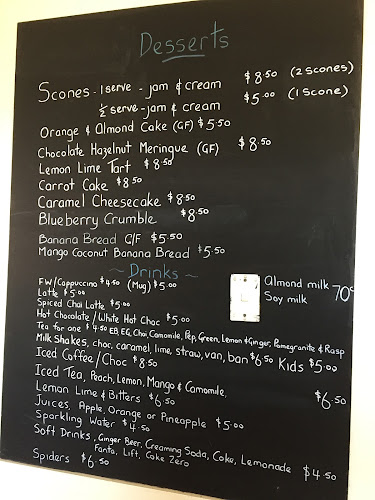 Desserts
Scones - 1 serve - jam & cream $8.50 (2 scones)
½ serve - jam & cream $5.00 (1 scone)
Orange & Almond Cake (GF) $5.50
Chocolate Hazelnut Meringue (GF) $8.50
Lemon Lime Tart $8.50
Carrot Cake $8.50
Caramel Cheesecake $8.50
Blueberry Crumble $8.50
Banana Bread G/F $5.50
Mango Coconut Banana Bread $5.50
~ Drinks ~
FW/Cappuccino $4.50 (Mug) $5.00
Almond milk
Soy milk 70¢
Latte $5.00
Spiced Chai Latte $5.00
Hot Chocolate / White Hot Choc $5.00
Tea for one $4.50 EB, EG, Chai, Camomile, Pep, Green, Lemon & Ginger, Pomegranate & Rasp
Milk Shakes, choc, caramel, lime, straw, van, ban $6.50 Kids $5.00
Iced Coffee / Choc $8.50
Iced Tea, Peach, Lemon, Mango & Camomile, $6.50
Lemon Lime & Bitters $6.50
Juices, Apple, Orange or Pineapple $5.00
Sparkling Water $4.50
Soft Drinks, Ginger Beer, Creaming Soda, Coke, Lemonade $4.50
Fanta, Lift, Coke Zero
Spiders $6.50